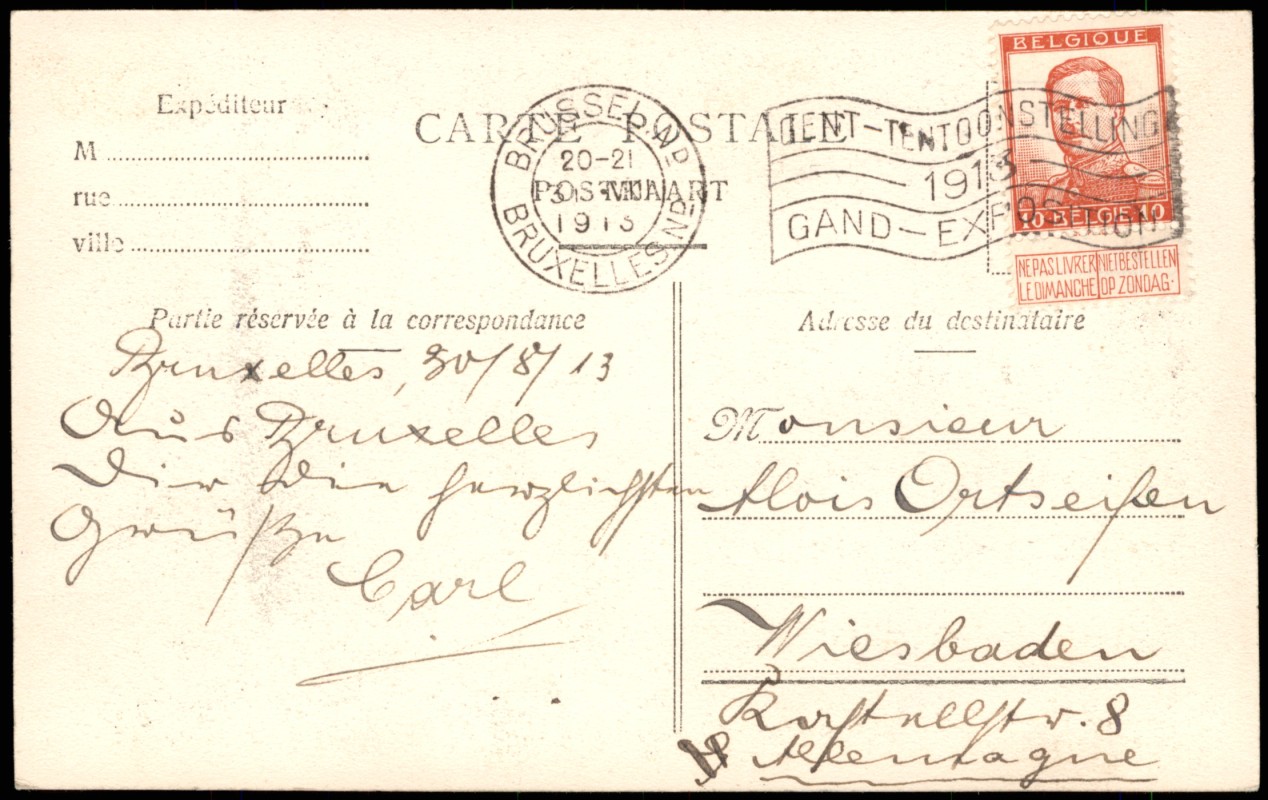 Expéditeur
M
rue
ville
CARTE POSTALE
POSTKAART
BRUSSEL Nᴅ
20-21
31 VIII
1913
BRUXELLES Nᴅ
GENT-TENTOONSTELLING
1913
GAND-EXPOSITION
BELGIQUE
10 BELGIË 10
NE PAS LIVRER LE DIMANCHE
NIET BESTELLEN OP ZONDAG.
Partie réservée à la correspondance
Bruxelles, 30/8/13
Aus Bruxelles
Dir die herzlichsten
Grüße
Carl
Adresse du destinataire
Monsieur
Alois Ortseifen
Wiesbaden
Kastellstr. 8
Allemagne